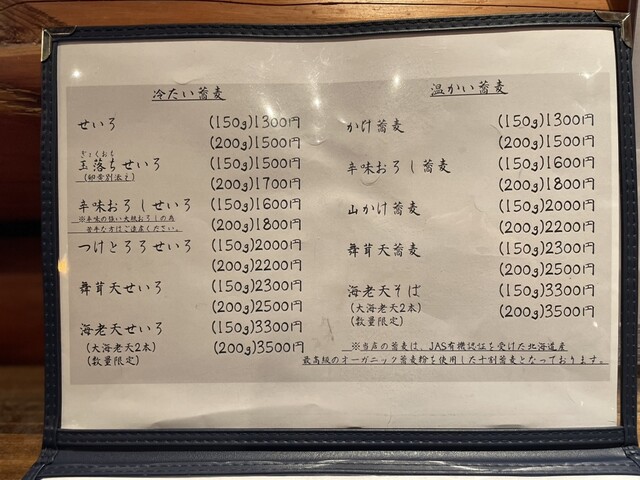 冷たい蕎麦
せいろ (150g)1300円
(200g)1500円
ぎょくおち
玉落ちせいろ (150g)1500円
(卵黄別添え) (200g)1700円
辛味おろしせいろ (150g)1600円
※辛味の強い大根おろしの為
苦手な方はご遠慮ください。 (200g)1800円
つけとろろせいろ (150g)2000円
(200g)2200円
舞茸天せいろ (150g)2300円
(200g)2500円
海老天せいろ (150g)3300円
(大海老天2本) (200g)3500円
(数量限定)
温かい蕎麦
かけ蕎麦 (150g)1300円
(200g)1500円
辛味おろし蕎麦 (150g)1600円
(200g)1800円
山かけ蕎麦 (150g)2000円
(200g)2200円
舞茸天蕎麦 (150g)2300円
(200g)2500円
海老天そば (150g)3300円
(大海老天2本) (200g)3500円
(数量限定)
※当店の蕎麦は、JAS有機認証を受けた北海道産
最高級のオーガニック蕎麦粉を使用した十割蕎麦となっております。